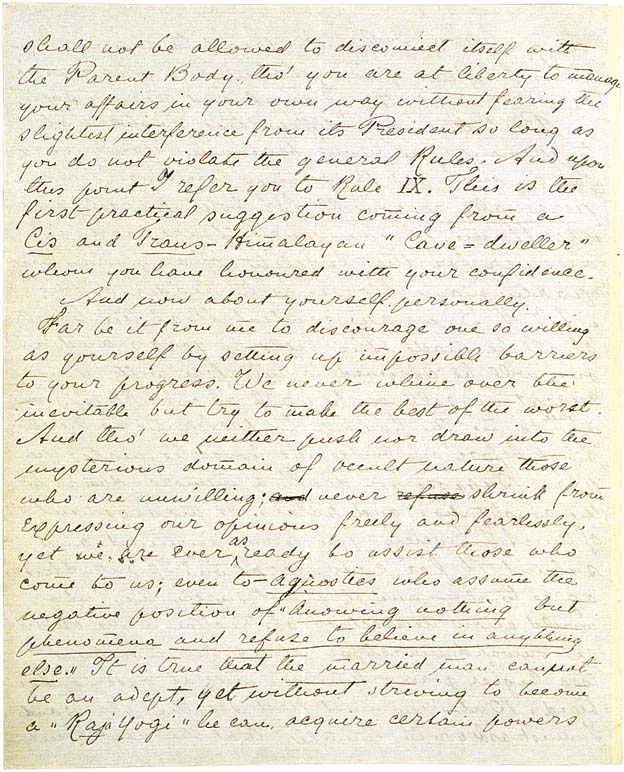 shall not be allowed to disconnect itself with
the Parent Body, tho' you are at liberty to manage
your affairs in your own way without fearing the
slightest interference from its President so long as
you do not violate the general Rules. And upon
this point I refer you to Rule IX. This is the
first practical suggestion coming from a
Cis and Trans-Himalayan "Cave=dweller"
whom you have honoured with your confidence.
And now about yourself personally.
Far be it from me to discourage one so willing
as yourself by setting up impossible barriers
to your progress. We never whine over the
inevitable but try to make the best of the worst.
And tho' we neither push nor draw into the
mysterious domain of occult nature those
who are unwilling; and never refuse shrink from
expressing our opinions freely and fearlessly,
yet we are ever as ready to assist those who
come to us; even to - agnostics who assume the
negative position of "knowing nothing but
phenomena and refuse to believe in anything
else." It is true that the married man cannot
be an adept, yet without striving to become
a "Raja Yogi" he can acquire certain powers